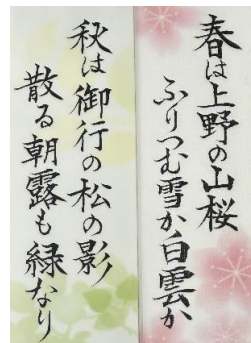 春は上野の山桜
ふりつむ雪か白雲か
秋は御行の松の影
散る朝露も緑なり